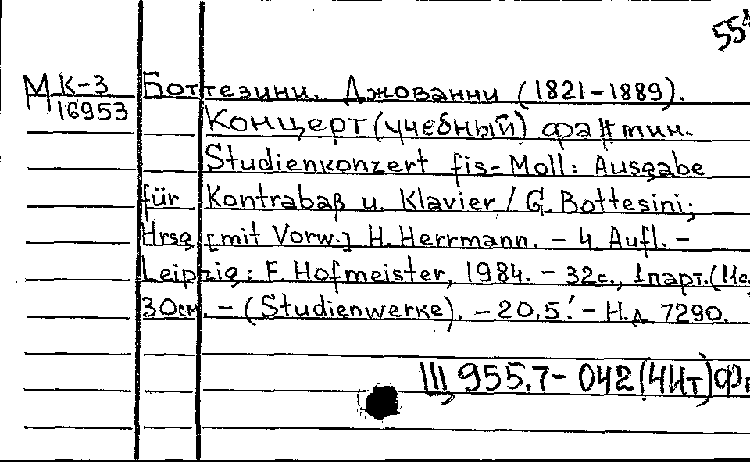 554
МК-3 Боттезини. Джованни (1821-1889).
16953 Концерт (учебный) фа # мин.
Studienkonzert fis-Moll: Ausgabe
für Kontrabaß u. Klavier / G. Bottesini;
Hrsg [mit Vorw.] H. Herrmann. - 4 Aufl. -
Leipzig: F. Hofmeister, 1984. - 32с., 1парт.
30см. - (Studienwerke). - 20,5! - Н.д 7290.
Щ 955.7-042(4Ит)